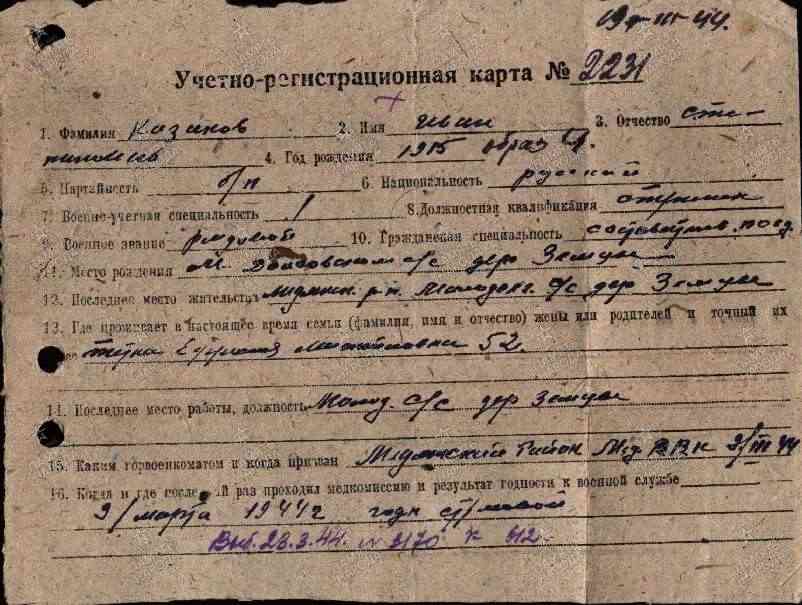 19-III-44.
Учетно-регистрационная карта № 2231
1. Фамилия Казаков 2. Имя Иван 3. Отчество Сте-
панович 4. Год рождения 1915 образ
5. Партийность б/п 6. Национальность русский
7. Военно-учетная специальность 1 8. Должностная квалификация стрелок
9. Военное звание рядовой 10. Гражданская специальность составитель поезд.
11. Место рождения с/с дер Земцы
12. Последнее место жительства с/с дер Земцы
13. Где проживает в настоящее время семья (фамилия, имя и отчество) жены или родителей и точный их
Михайловна 52
14. Последнее место работы, должность Молод. с/с дер Земцы
15. Каким горвоенкоматом и когда призван район РВК 9/III 44
16. Когда и где последний раз проходил медкомиссию и результат годности к военной службе
9/марта 1944г годн строевой
Выб. 28.3.44. № 3170 к 912